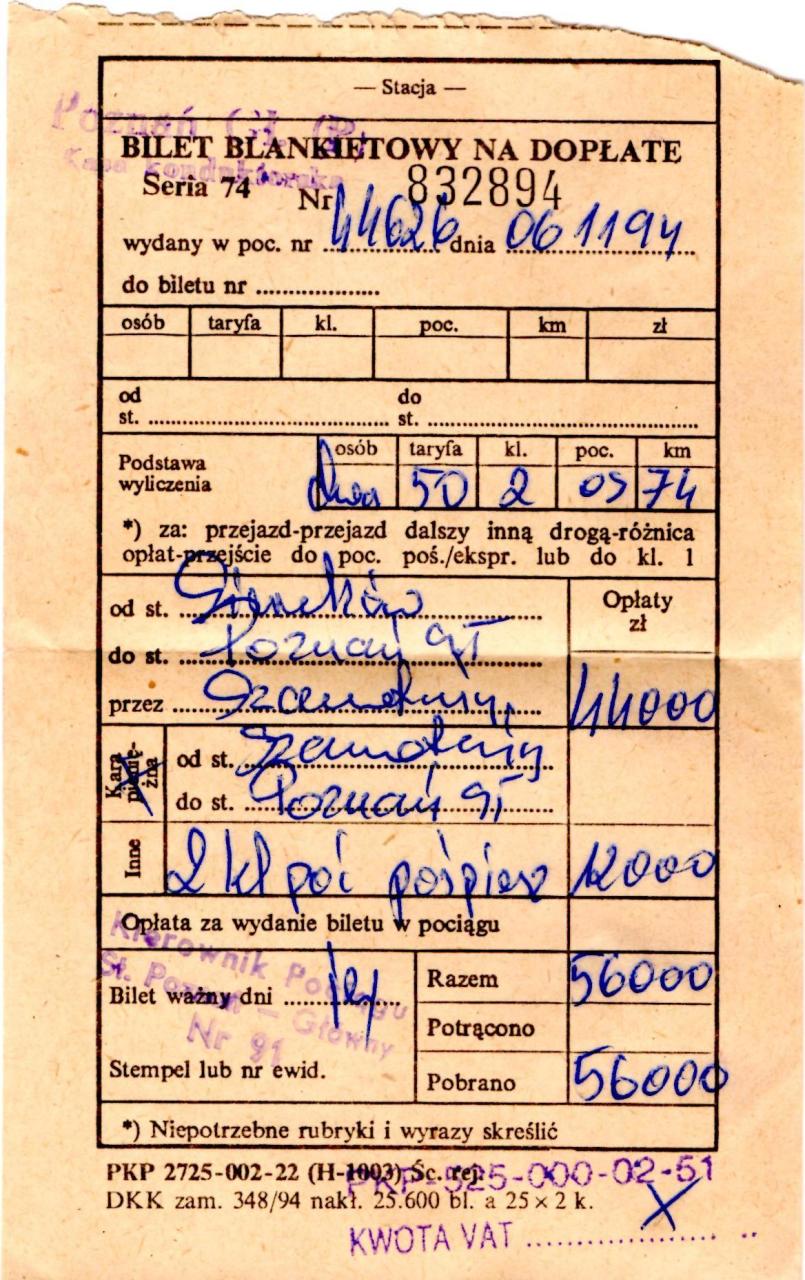 — Stacja —
Poznań Gł.
Kasa konduktorska
BILET BLANKIETOWY NA DOPŁATE
Seria 74 Nr 832894
wydany w poc. nr 44626 dnia 061194
do biletu nr
osób taryfa kl. poc. km zł
od st. do st.
osób taryfa kl. poc. km
Podstawa wyliczenia dwa 50 2 os 74
*) za: przejazd-przejazd dalszy inną drogą-różnica
opłat-przejście do poc. poś./ekspr. lub do kl. 1
Opłaty zł
od st.
do st. Poznań Gł
przez Szamotuły 44000
Kara pienię-żna
od st. Szamotuły
do st. Poznań Gł
Inne 2 kl poc pośpiesz 12000
Opłata za wydanie biletu w pociągu
Kierownik Pociągu
St. Poznań – Główny
Nr 91
Razem 56000
Bilet ważny dni
Potrącono
Stempel lub nr ewid.
Pobrano 56000
*) Niepotrzebne rubryki i wyrazy skreślić
PKP 2725-002-22 (H-1003) Śc. rej.
PKP-525-000-02-51
DKK zam. 348/94 nakł. 25.600 bl. a 25 × 2 k.
KWOTA VAT X